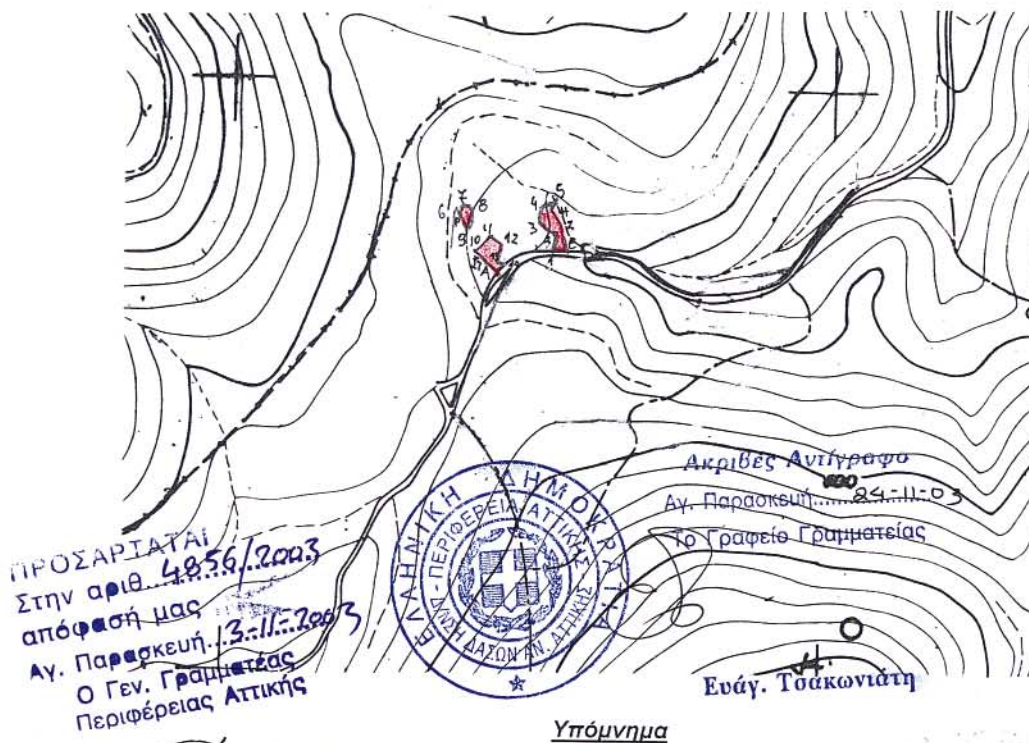 5
7
4
6
8
3
9
10
12
ΠΡΟΣΑΡΤΑΤΑΙ
Στην αριθ. 4856/2003
απόφασή μας
Αγ. Παρασκευή 3-11-2003
Ο Γεν. Γραμματέας
Περιφέρειας Αττικής
ΕΛΛΗΝΙΚΗ ΔΗΜΟΚΡΑΤΙΑ
ΠΕΡΙΦΕΡΕΙΑ ΑΤΤΙΚΗΣ
ΔΑΣΩΝ ΑΝ. ΑΤΤΙΚΗΣ
Ακριβές Αντίγραφο
Αγ. Παρασκευή 24-11-03
Το Γραφείο Γραμματείας
Ευάγ. Τσακωνιάτη
Υπόμνημα